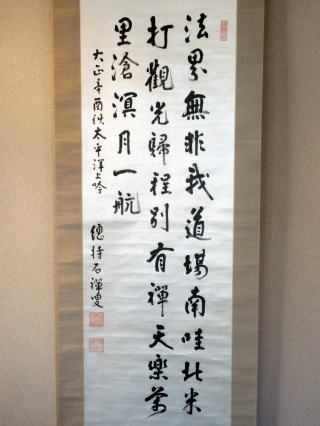 法界無非我道場南哇北米
打觀光歸程別有禪天樂萬
里滄溟月一航
大正辛酉秋太平洋上吟
總持石禪叟